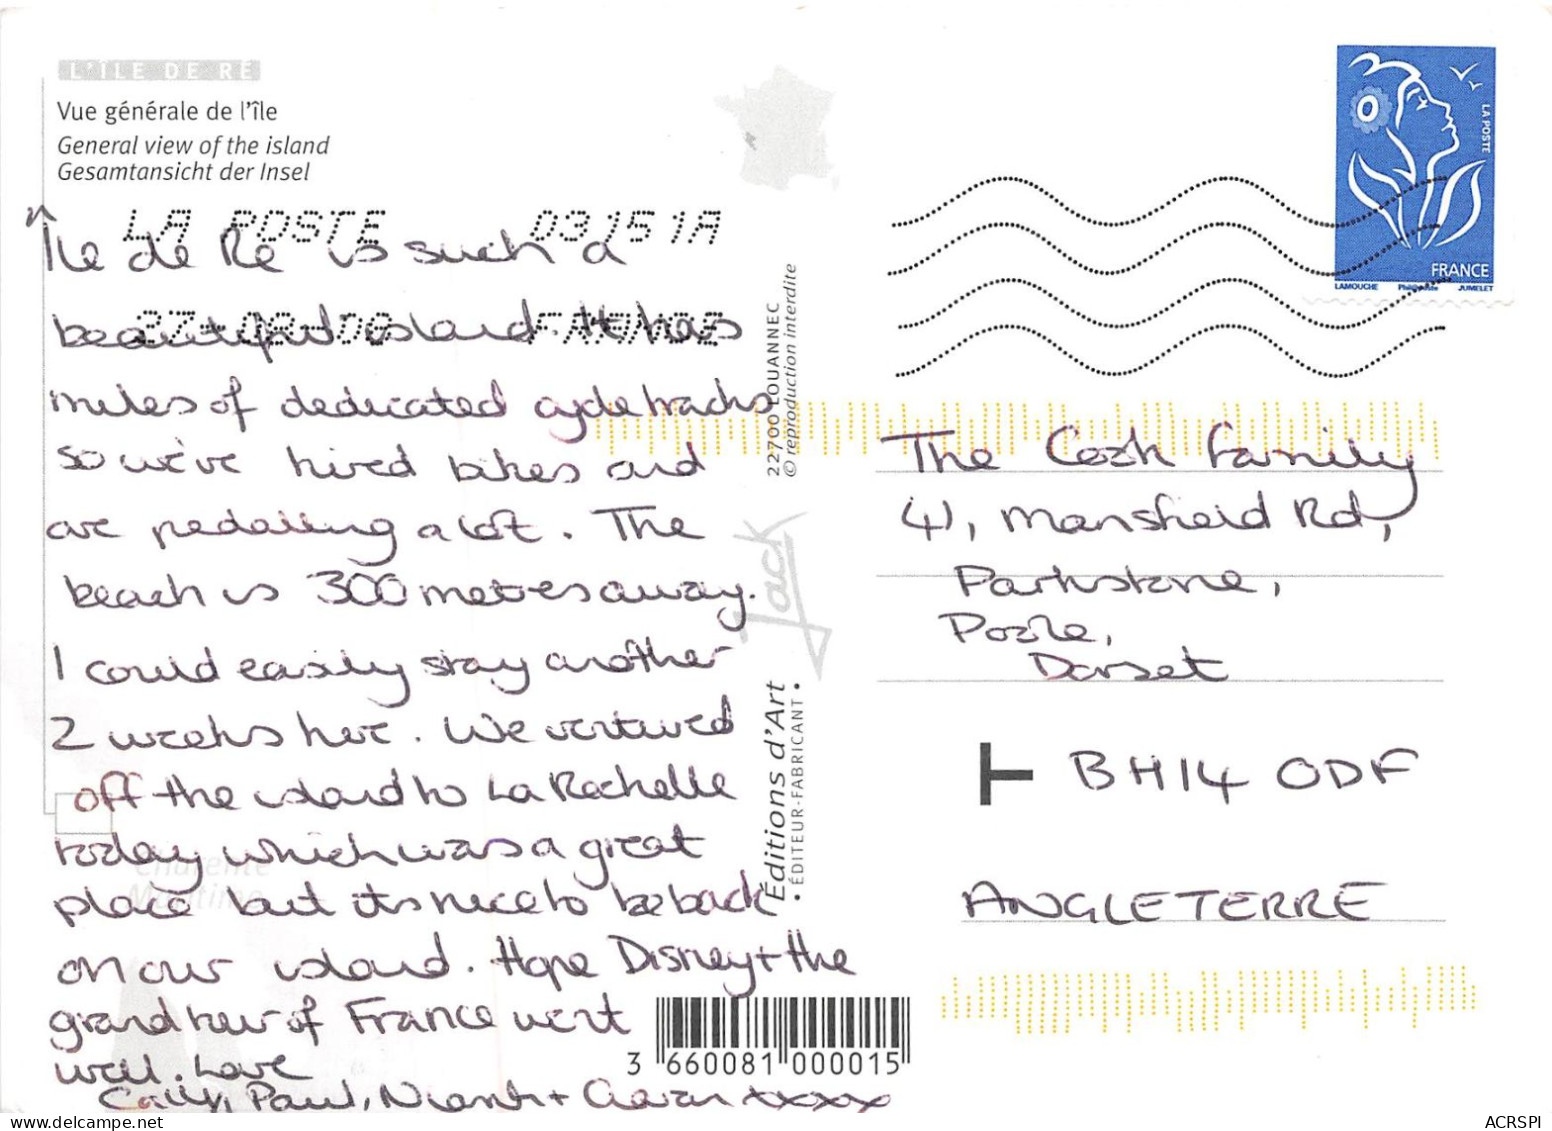 L'ÎLE DE RÉ
Vue générale de l'île
General view of the island
Gesamtansicht der Insel
LA POSTE 03151A
FRANCE
Ile de Ré is such a
beautiful island. It has
miles of dedicated cycle tracks
so we've hired bikes and
are pedalling a lot. The
beach is 300 metres away.
I could easily stay another
2 weeks here. We ventured
off the island to La Rochelle
today which was a great
place but its nice to be back
on our island. Hope Disney + the
grand tour of France went
well. Love
Paul, + xxxx
Charente
Maritime
22700 LOUANNEC
© reproduction interdite
Jack
Éditions d'Art
• ÉDITEUR-FABRICANT •
3 660081 000015
LA POSTE
FRANCE
LAMOUCHE JUMELET
The Family
41, Mansfield Rd,
Parkstone,
Poole,
Dorset
BH14 0DF
ANGLETERRE
ACRSPI